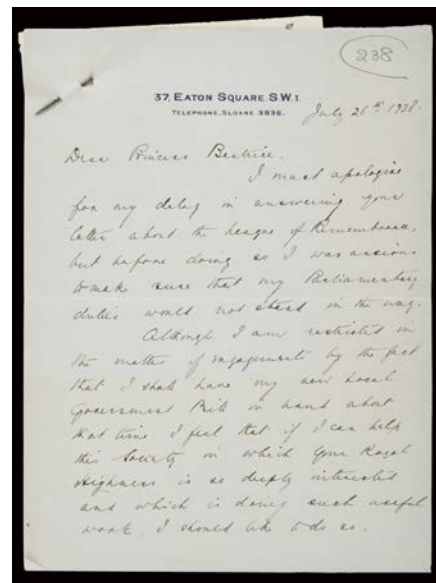 238
37, EATON SQUARE. S.W.1.
TELEPHONE, SLOANE 3838.
July 26th 1928.
Dear Princess Beatrice.
I must apologise
for my delay in answering your
letter about the League of Remembrance,
but before doing so I was anxious
to make sure that my Parliamentary
duties would not stand in the way.
Although I am restricted in
the matter of engagements by the fact
that I shall have my new Local
Government Bill on hand about
that time I feel that if I can help
this Society in which Your Royal
Highness is so deeply interested
and which is doing such useful
work, I should like to do so.